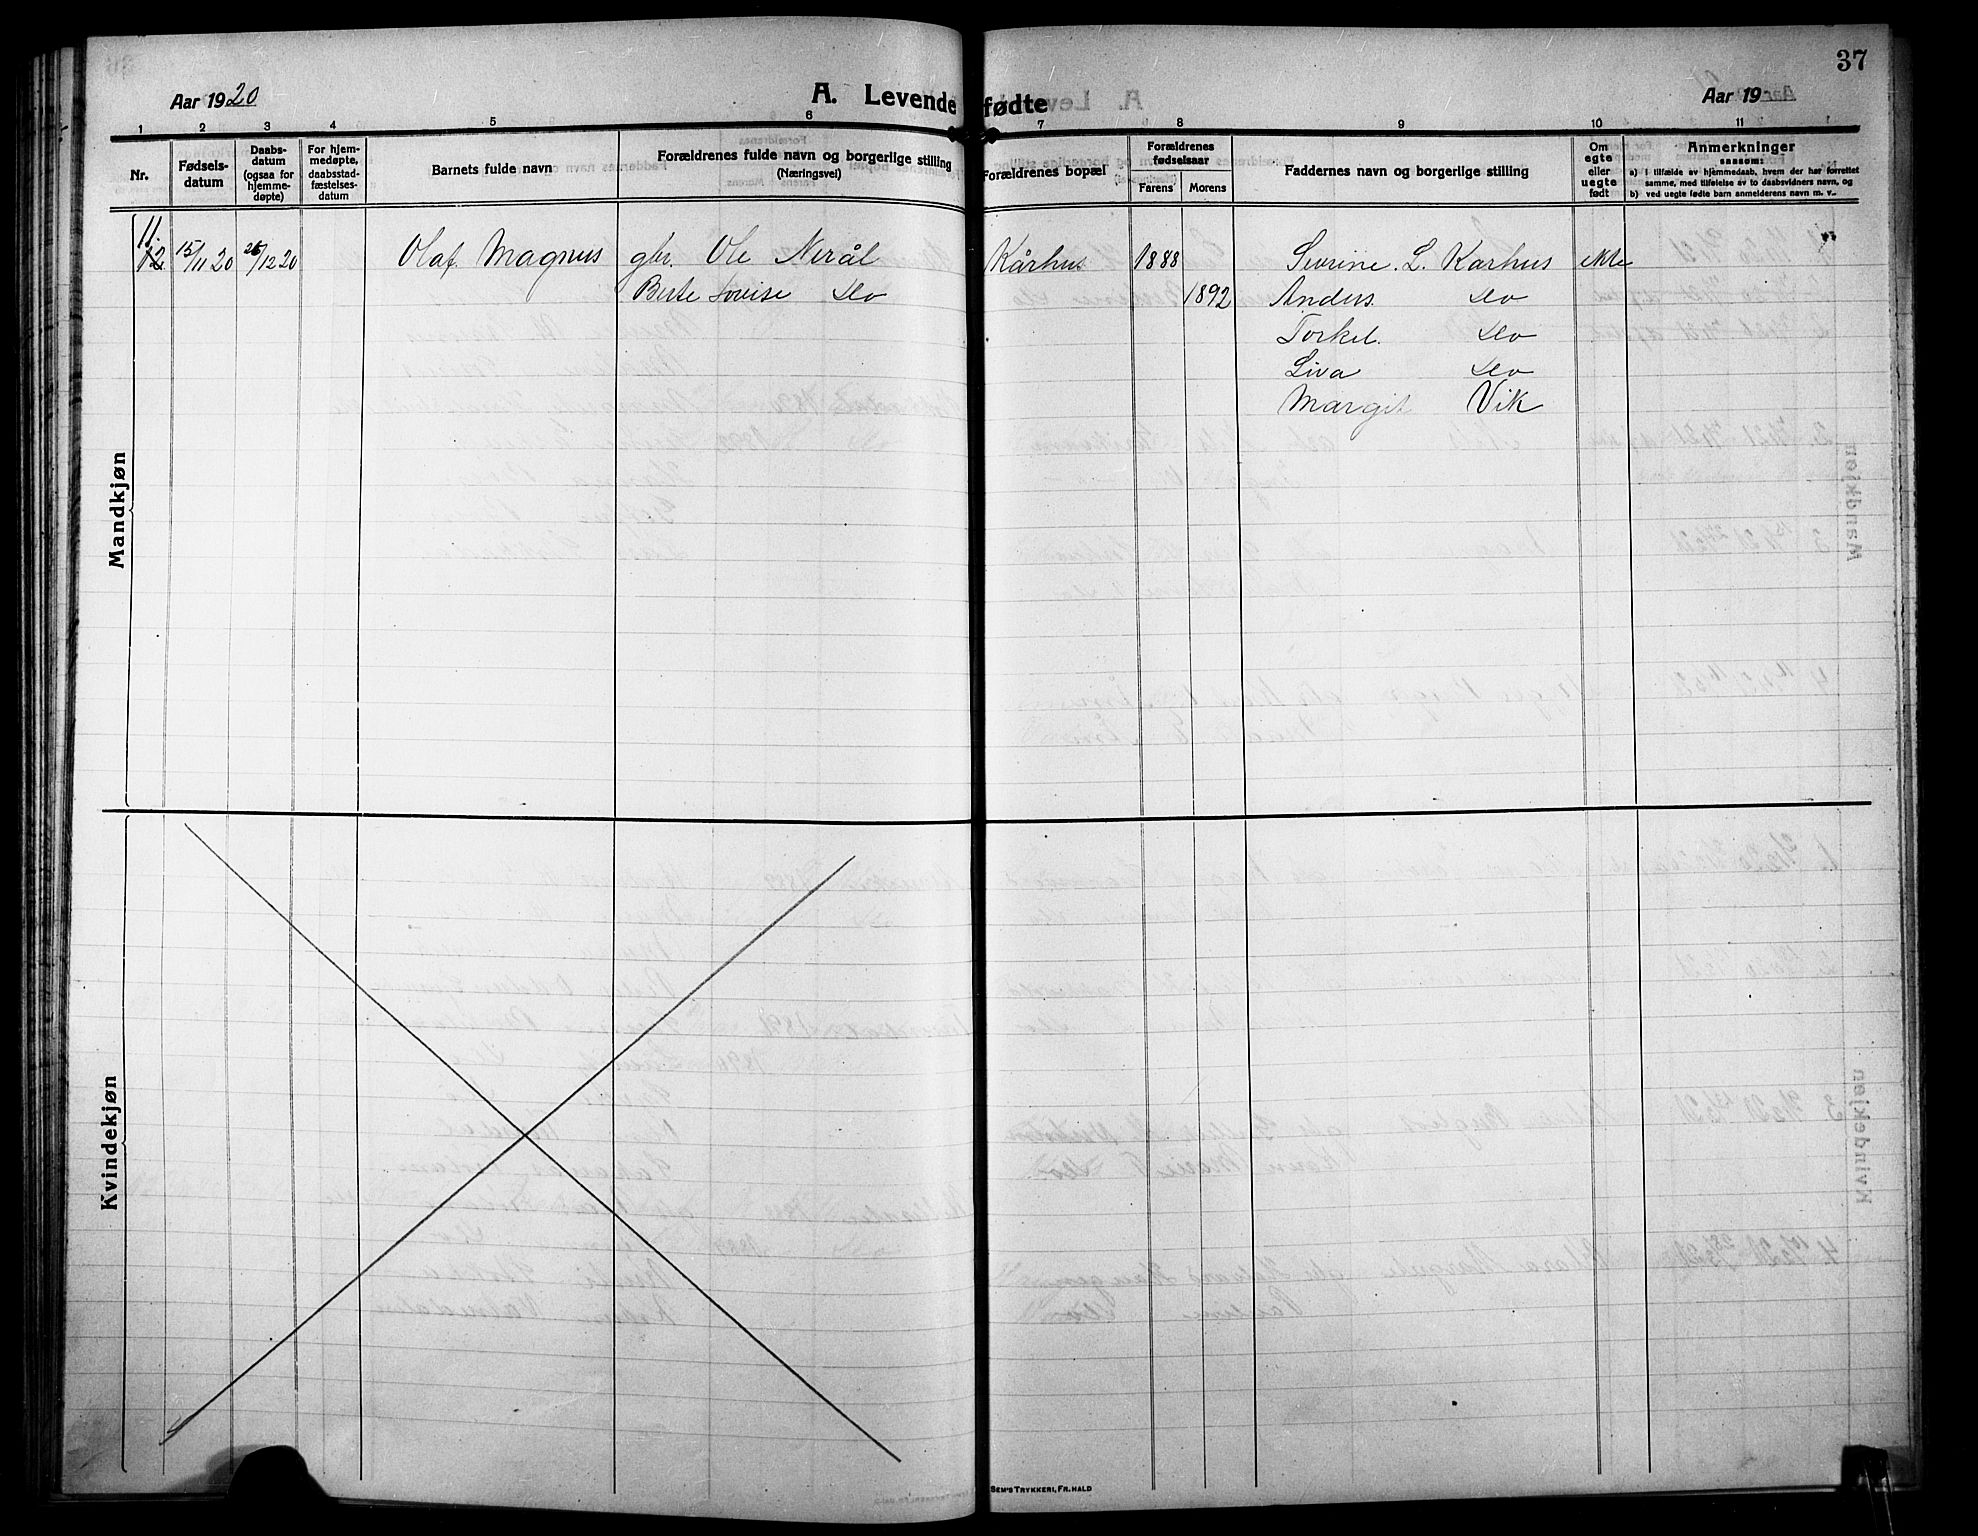 37
Aar 1920
A. Levende fødte
Aar 19
1 2 3 4 5 6 7 8 9 10 11
Nr.
Fødsels-
datum
Daabs-
datum
(ogsaa for
hjemme-
døpte)
For hjem-
medøpte,
daabsstad-
fæstelses-
datum
Barnets fulde navn
Forældrenes fulde navn og borgerlige stilling
(Næringsvei)
Forældrenes bopæl
Forældrenes
fødselsaar
Farens Morens
Faddernes navn og borgerlige stilling
Om
egte
eller
uegte
født
Anmerkninger
saasom:
a) i tilfælde av hjemmedaab, hvem der har forrettet
samme, med tilføielse av to daabsvidners navn, og
b) ved uegte fødte barn anmelderens navn m. v.
Mandkjøn
11.
12 15/11 20 26/12 20 Olaf Magnus gbr. Ole Nerål Kårhus 1888 Sivrine L. Karhus ekte
Berte Lovise do 1892 Anders do
Torkel do
Liva do
Margit Vik
Kvindekjøn
SEM'S TRYKKERI, FR.HALD